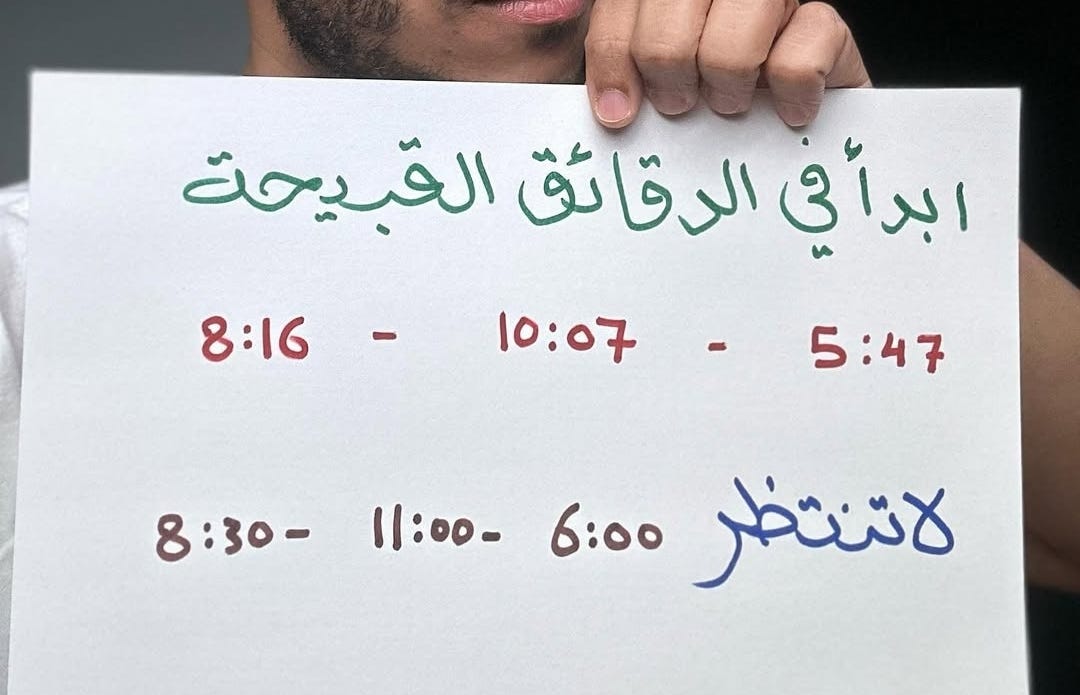 ابدأ في الدقائق القبيحة
5:47 - 10:07 - 8:16
لا تنتظر 6:00 - 11:00 - 8:30